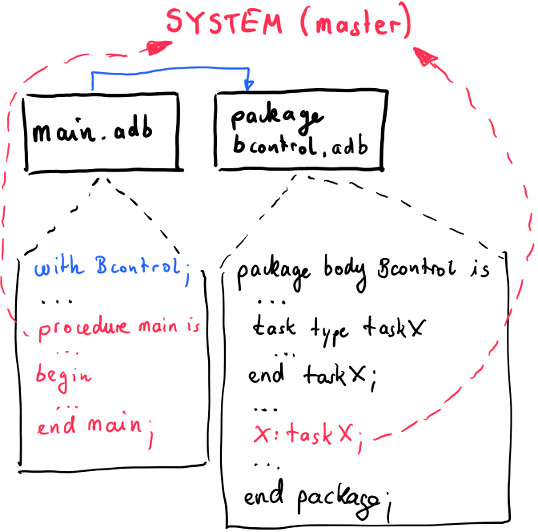 SYSTEM (master)
main.adb
package
bcontrol.adb
with Bcontrol;
...
procedure main is
...
begin
...
end main;
package body Bcontrol is
...
task type taskX
...
end taskX;
...
X: taskX;
...
end package;